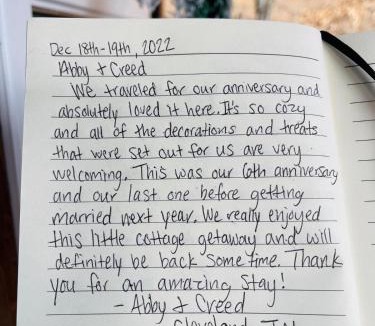 Dec 18th-19th, 2022
Abby & Creed
We traveled for our anniversary and
absolutely loved it here. It's so cozy
and all of the decorations and treats
that were set out for us are very
welcoming. This was our 6th anniversary
and our last one before getting
married next year. We really enjoyed
this little cottage getaway and will
definitely be back some time. Thank
you for an amazing stay!
- Abby & Creed
Cleveland, TN